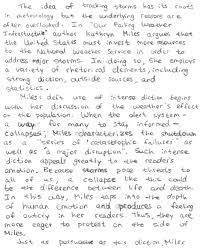 The idea of tracking storms has its roots
in meteorology but the underlying reasons are
often overlooked. In "Our Failing Weather
Infrastructure" author Kathryn Miles argues that
the United States must invest more resources
to the National Weather Service in order to
address major storms. In doing so, she employs
a variety of rhetorical elements, including
strong diction, outside sources, and
statistics.
Miles' deft use of intense diction begins
with her discussion of the weather's effect
on the population. When the alert system -
a way for many to stay informed -
"collapses", Miles characterizes the shutdown
as a "series of catastrophic failures" as
well as a "major disruption". Such intense
diction appeals greatly to the reader's
emotion. Because storms pose threats to
all of us, a collapse like this could
be the difference between life and death.
In this way, Miles taps into the depth
of human emotion and produces a feeling
of outcry in her readers. Thus, they are
more eager to protest on the side of
Miles.
Just as persuasive as this diction Miles